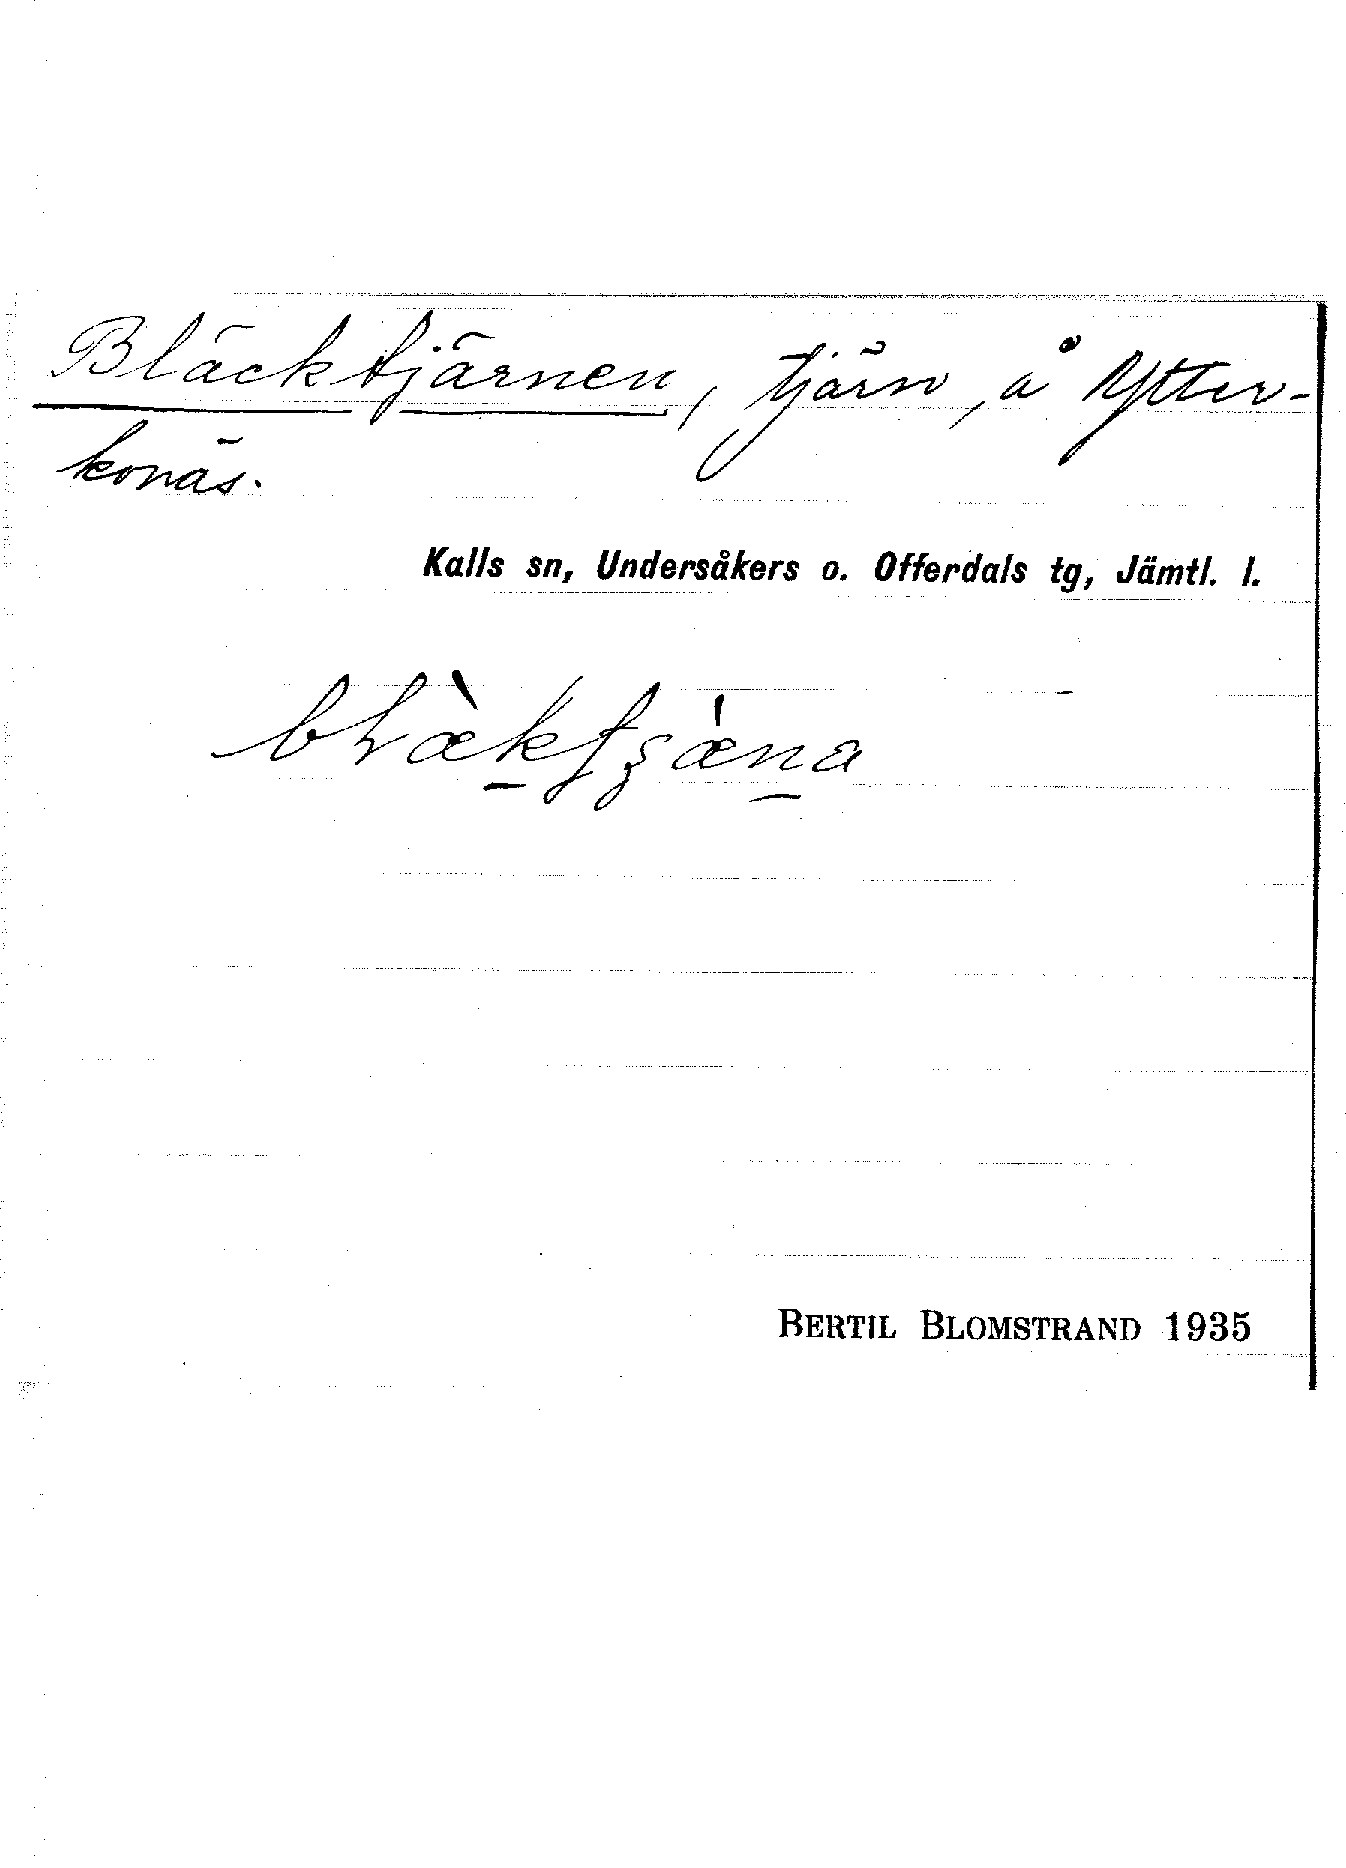 Bläcktjärnen, tjärn, å Ytter-
konäs.
Kalls sn, Undersåkers o. Offerdals tg, Jämtl. l.
BERTIL BLOMSTRAND 1935